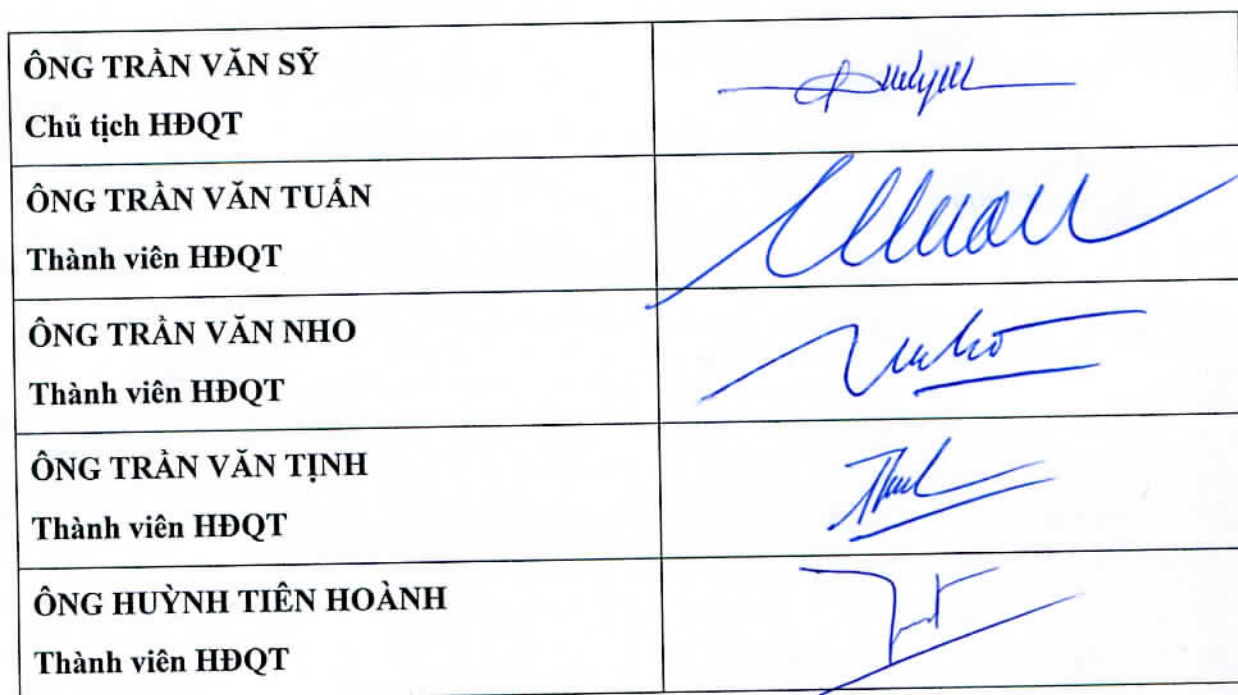 ÔNG TRẦN VĂN SỸ
Chủ tịch HĐQT
ÔNG TRẦN VĂN TUẤN
Thành viên HĐQT
ÔNG TRẦN VĂN NHO
Thành viên HĐQT
ÔNG TRẦN VĂN TỊNH
Thành viên HĐQT
ÔNG HUỲNH TIÊN HOÀNH
Thành viên HĐQT